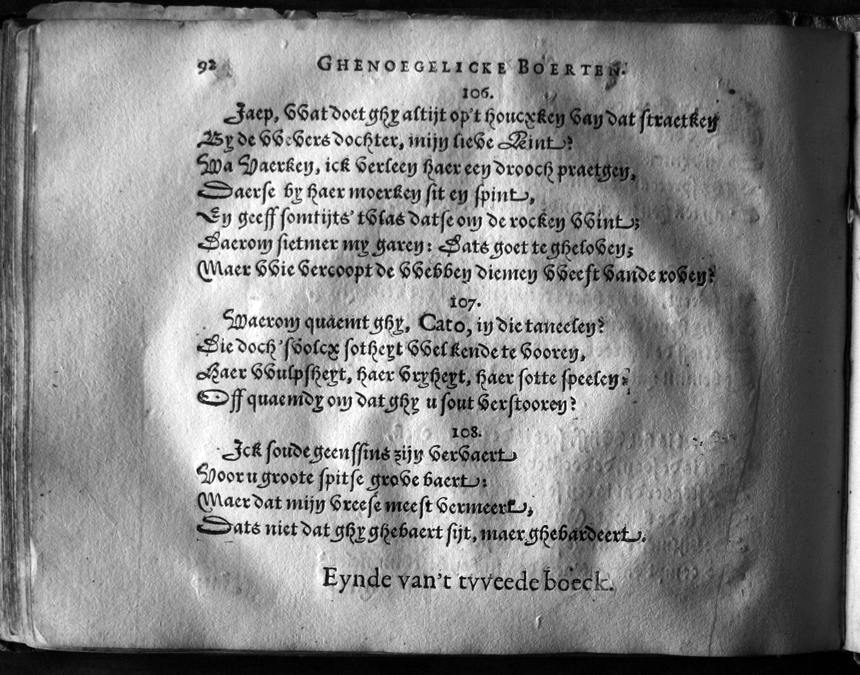 92 GHENOEGELICKE BOERTEN.
106.
Jaep, VVat doet ghy altijt op't houcxken van dat straetken
By de VVevers dochter, mijn lieve Quint?
Wa Vaerken, ick verleen haer een drooch praetgen,
Daerse by haer moerken sit en spint,
En geeff somtijts' tvlas datse om de rocken VVint;
Daerom sietmer my garen: Dats goet te gheloven;
Maer VVie vercoopt de VVebben diemen VVeeft vande roven?
107.
Waerom quaemt ghy, Cato, in die taneelen?
Die doch 'svolcx sotheyt VVel kende te vooren,
Haer VVulpsheyt, haer vryheyt, haer sotte speelen;
Off quaemdy om dat ghy u sout verstooren?
108.
Ick soude geenssins zijn vervaert
Voor u groote spitse grove baert:
Maer dat mijn vreese meest vermeert,
Dats niet dat ghy ghebaert sijt, maer ghebardeert.
Eynde van't tvveede boeck.